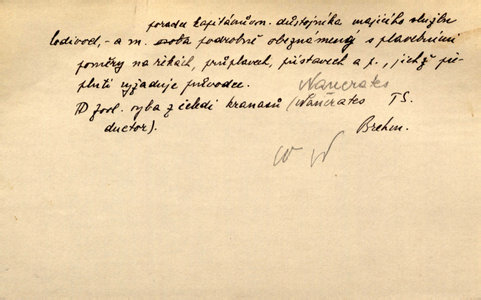 poradu kapitánům. důstojníka majícího službu
lodivod, - a m. osoba podrobně obeznámený s plavebními
poměry na řekách, průplavech, přístavech a p., jichž pře-
plutí vyžaduje průvodce. Naucrates
D zool. ryba z čeledi kranasů (Naucrates TS.
ductor). Brehm.